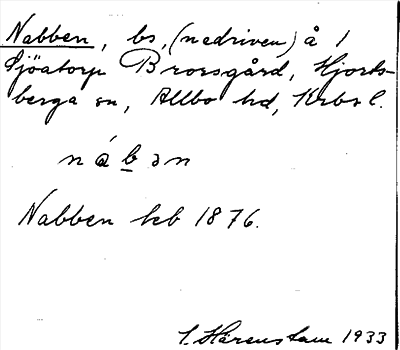 Nabben, bs, (nedriven) å 1
Sjöatorp Brorsgård, Hjorts-
berga sn, Allbo hd, Krbs l.
nábən
Nabben kb 1876.
S. Härenstam 1933